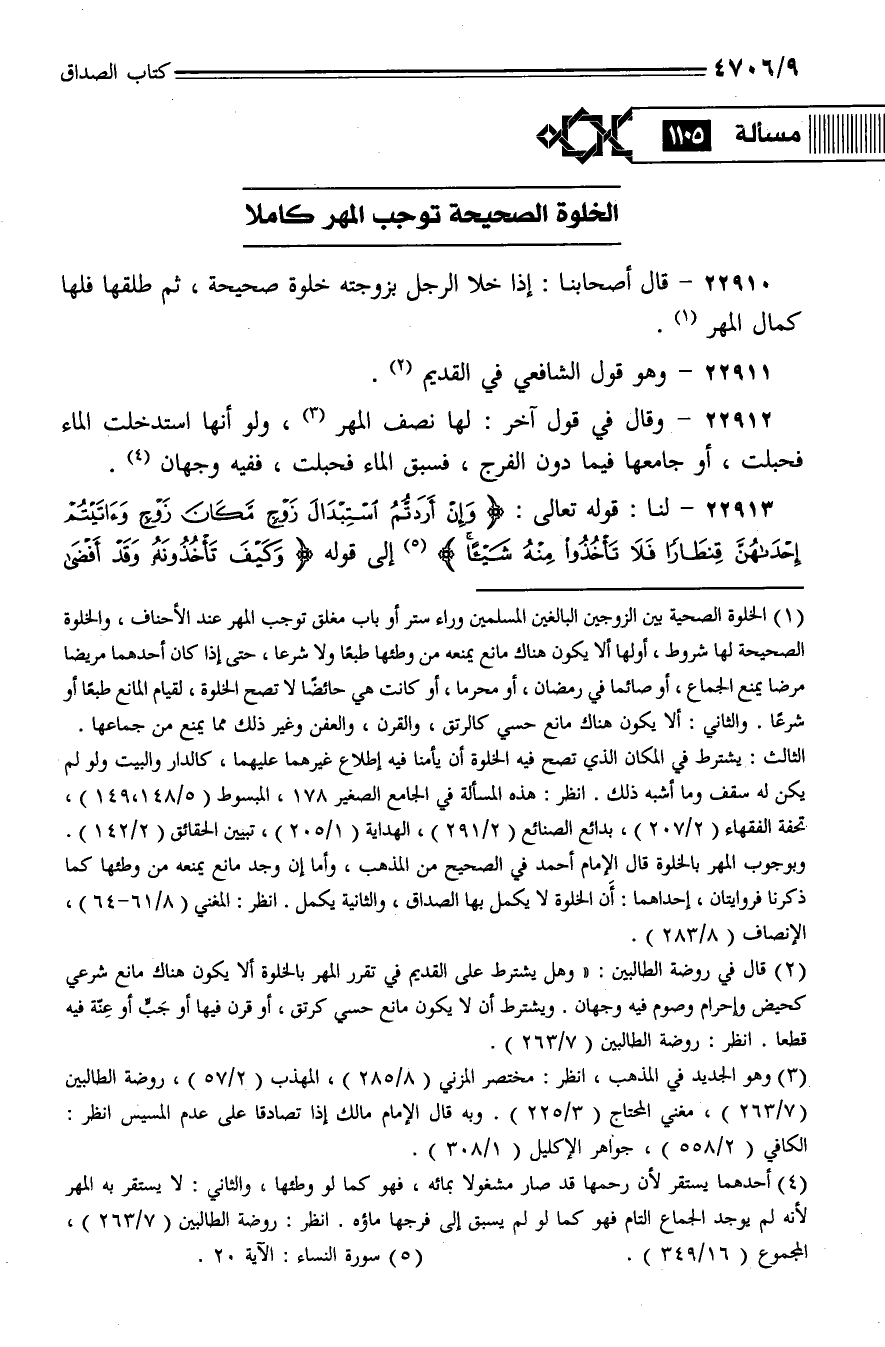 ٤٧٠٦/٩ كتاب الصداق
مسألة ١١٠٥
الخلوة الصحيحة توجب المهر كاملا
٢٢٩١٠ - قال أصحابنا : إذا خلا الرجل بزوجته خلوة صحيحة ، ثم طلقها فلها
كمال المهر (١) .
٢٢٩١١ - وهو قول الشافعي في القديم (٢) .
٢٢٩١٢ - وقال في قول آخر : لها نصف المهر (٣) ، ولو أنها استدخلت الماء
فحبلت ، أو جامعها فيما دون الفرج ، فسبق الماء فحبلت ، ففيه وجهان (٤) .
٢٢٩١٣ - لنا : قوله تعالى : ﴿ وَإِنْ أَرَدتُّمُ ٱسْتِبْدَالَ زَوْجٍ مَّكَانَ زَوْجٍ وَءَاتَيْتُمْ
إِحْدَىٰهُنَّ قِنطَارًا فَلَا تَأْخُذُوا۟ مِنْهُ شَيْـًٔاۚ ﴾ (٥) إلى قوله ﴿ وَكَيْفَ تَأْخُذُونَهُۥ وَقَدْ أَفْضَىٰ
(١) الخلوة الصحية بين الزوجين البالغين المسلمين وراء ستر أو باب مغلق توجب المهر عند الأحناف ، والخلوة
الصحيحة لها شروط ، أولها ألا يكون هناك مانع يمنعه من وطئها طبعًا ولا شرعا ، حتى إذا كان أحدهما مريضا
مرضا يمنع الجماع ، أو صائما في رمضان ، أو محرما ، أو كانت هي حائضًا لا تصح الخلوة ، لقيام المانع طبعًا أو
شرعًا . والثاني : ألا يكون هناك مانع حسي كالرتق ، والقرن ، والعفن وغير ذلك مما يمنع من جماعها .
الثالث : يشترط في المكان الذي تصح فيه الخلوة أن يأمنا فيه إطلاع غيرهما عليهما ، كالدار والبيت ولو لم
يكن له سقف وما أشبه ذلك . انظر : هذه المسألة في الجامع الصغير ١٧٨ ، المبسوط ( ١٤٩،١٤٨/٥ ) ،
تحفة الفقهاء ( ٢٠٧/٢ ) ، بدائع الصنائع ( ٢٩١/٢ ) ، الهداية ( ٢٠٥/١ ) ، تبيين الحقائق ( ١٤٢/٢ ) .
وبوجوب المهر بالخلوة قال الإمام أحمد في الصحيح من المذهب ، وأما إن وجد مانع يمنعه من وطئها كما
ذكرنا فروايتان ، إحداهما : أن الخلوة لا يكمل بها الصداق ، والثانية يكمل . انظر : المغني ( ٦١/٨-٦٤ ) ،
الإنصاف ( ٢٨٣/٨ ) .
(٢) قال في روضة الطالبين : « وهل يشترط على القديم في تقرر المهر بالخلوة ألا يكون هناك مانع شرعي
كحيض وإحرام وصوم فيه وجهان . ويشترط أن لا يكون مانع حسي كرتق ، أو قرن فيها أو جَبٍّ أو عِنّة فيه
قطعا . انظر : روضة الطالبين ( ٢٦٣/٧ ) .
(٣) وهو الجديد في المذهب ، انظر : مختصر المزني ( ٢٨٥/٨ ) ، المهذب ( ٥٧/٢ ) ، روضة الطالبين
( ٢٦٣/٧ ) ، مغني المحتاج ( ٢٢٥/٣ ) . وبه قال الإمام مالك إذا تصادقا على عدم المسيس انظر :
الكافي ( ٥٥٨/٢ ) ، جواهر الإكليل ( ٣٠٨/١ ) .
(٤) أحدهما يستقر لأن رحمها قد صار مشغولا بمائه ، فهو كما لو وطئها ، والثاني : لا يستقر به المهر
لأنه لم يوجد الجماع التام فهو كما لو لم يسبق إلى فرجها ماؤه . انظر : روضة الطالبين ( ٢٦٣/٧ ) ،
المجموع ( ٣٤٩/١٦ ) . (٥) سورة النساء : الآية ٢٠ .